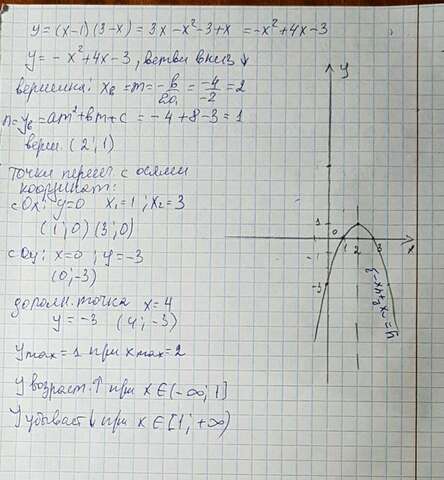 y = (x-1)(3-x) = 3x - x² - 3 + x = -x² + 4x - 3
y = - x² + 4x - 3, ветви вниз ↓
вершина: x₆ = m = -b/2a = -4/-2 = 2
n = y₆ = am² + bm + c = -4 + 8 - 3 = 1
верш. (2; 1)
точки перес. с осями
координат:
с Ox: y=0 x₁=1; x₂=3
(1; 0) (3; 0)
с Oy: x=0; y=-3
(0; -3)
дополн. точка x=4
y = -3 (4; -3)
y max = 1 при x max = 2
y возраст. ↑ при x∈(-∞; 1]
y убывает ↓ при x∈[1; +∞)
y
1
0
1 2 3
x
-1
-3
y=-x²+4x-3